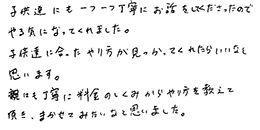 子供達にも一つ一つ丁寧にお話をしてくださったので
やる気になってくれました。
子供達に合ったやり方が見つかってくれたらいいなと
思います。
親にも丁寧に料金のしくみからやり方を教えて
頂き、まかせてみたいなと思いました。